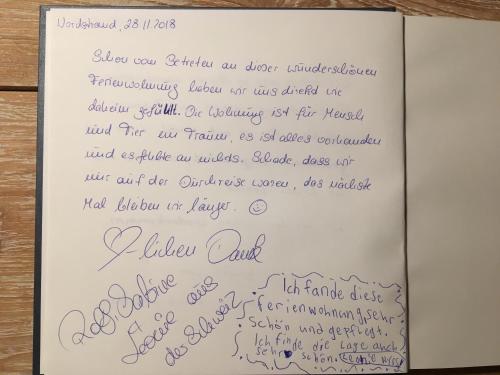 Nordstrand, 28.11.2018
Schon vom Betreten an dieser wunderschönen
Ferienwohnung haben wir uns direkt wie
daheim gefühlt. Die Wohnung ist für Mensch
und Tier ein Traum, es ist alles vorhanden
und es fehlte an nichts. Schade, dass wir
nur auf der Durchreise waren, das nächste
Mal bleiben wir länger. ☺
♡-lichen Dank
Rolf, Sabine
Leonie aus
der Schweiz
Ich fande diese
Ferienwohnung sehr
schön und gepflegt.
Ich finde die Lage auch
sehr schön.